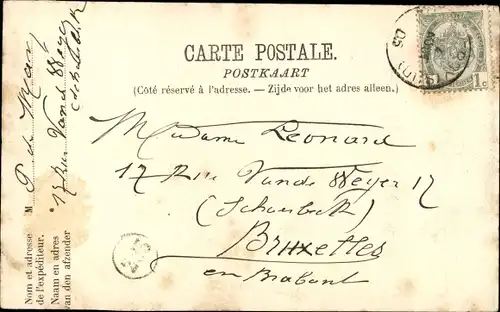 CARTE POSTALE.
POSTKAART
(Côté réservé à l'adresse. — Zijde voor het adres alleen.)
Madame Leonard
17 Rue Vande Weyer 17
(Schaerbeek)
Bruxelles
en Brabant
Nom et adresse M
de l'expéditeur.
Naam en adres
van den afzender
17 Rue Vande Weyer
1c
1c
05